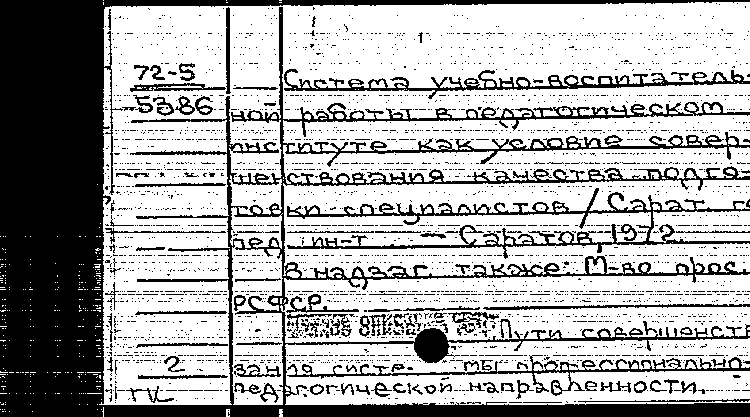 72-5
5386
Система учебно-воспитатель-
ной работы в педагогическом
институте как условие совер-
шенствования качества подго-
товки специалистов / Сарат. го
пед. ин-т — Саратов, 1972.
В надзаг. также: М-во прос.
РСФСР.
Пути совершенст
вания систе мы профессионально-
2
педагогической направленности.